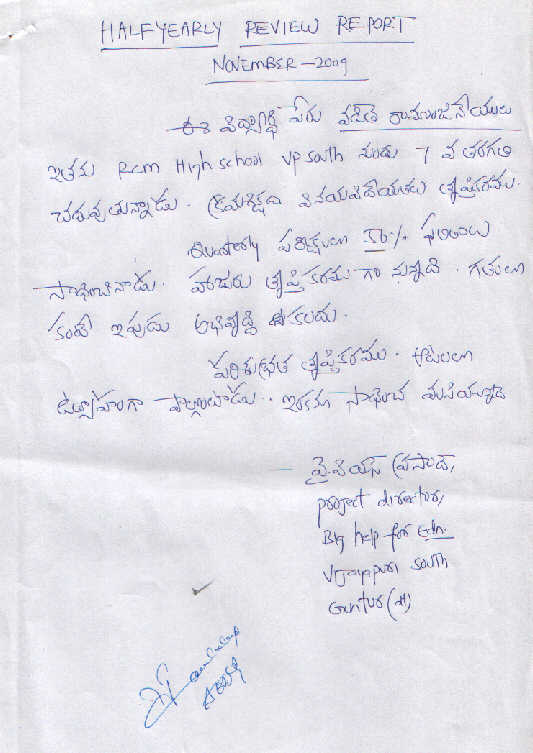 HALF YEARLY REVIEW REPORT
NOVEMBER - 2009
ఈ విద్యార్థి పేరు
ఇతను RCM High school VP south నందు 7 వ తరగతి
చదువుతున్నాడు. క్రమశిక్షణ తృప్తికరము.
Quarterly పరీక్షలలో ఫలితాలు
సాధించినాడు. హాజరు తృప్తికరము గా నున్నది. గతంలో
కంటే ఇపుడు అభివృద్ధి కలదు.
పరిశుభ్రత తృప్తికరము. ఆటలలో
ఉత్సాహంగా పాల్గొంటాడు. ఇతను
వై.వియస్ ప్రసాద్,
project director,
Big help for Edn.
Vijayapuri south
Guntur (dt)